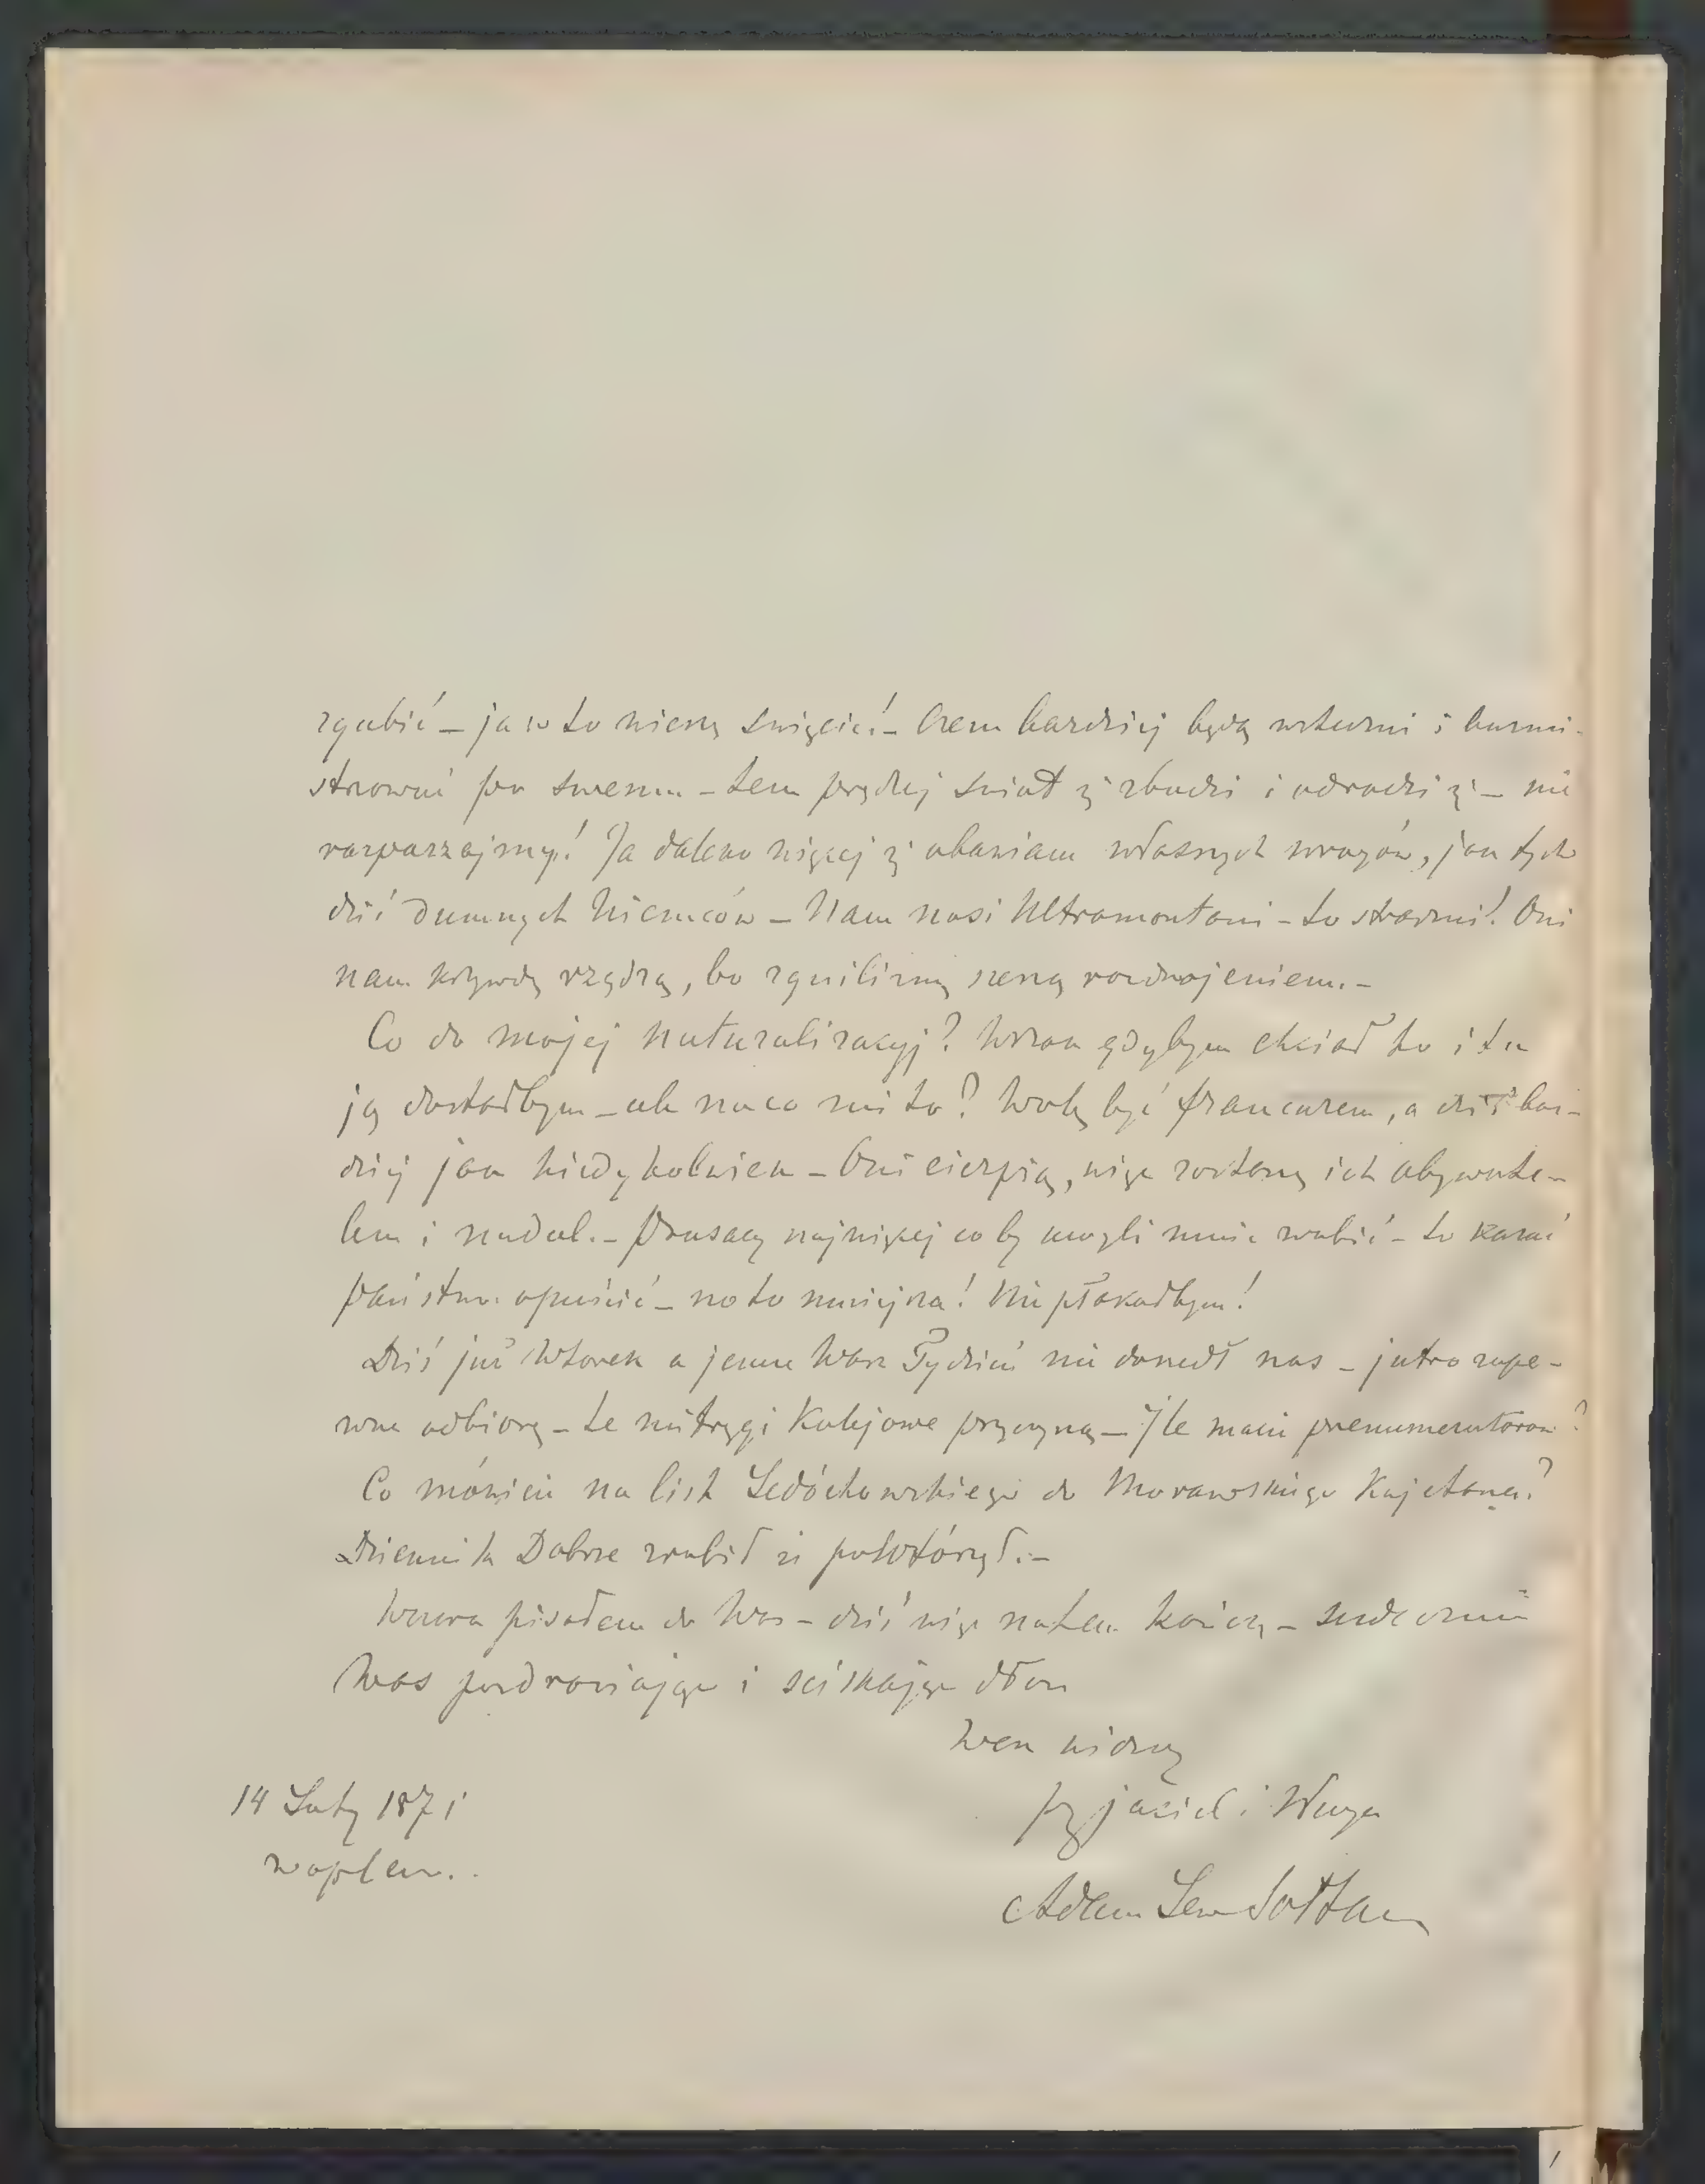 zgubić – ja w to wierzę święcie! – Czem bardziej będą butni i burmi-
strować po swemu – tem prędzej świat się zbudzi i odrodzi się – nie
rozpaczajmy! Ja daleko więcej się obawiam własnych wrogów, jak tych
dziś dumnych Niemców – Nam nasi Ultramontani – to straszni! Oni
nam krzywdę rządzą, bo zgnilizną szerzą rozdwojeniem. –
Co do mojej naturalizacyj? Wszak gdybym chciał to i tu
ją dostałbym – ale na co mi to? Wolę być francuzem, a dziś bar-
dziej jak kiedykolwiek – Oni cierpią, więc zostanę ich obywate-
lem i nadal. – Prusacy najwięcej co by mogli mnie zrobić – to kazać
państwo opuścić – no to mniejsza! Nie płakałbym!
Dziś już Wtorek a jeszcze Wasz Tydzień nie doszedł nas – jutro zape-
wne odbiorę – te mitręgi Kolejowe przyczyną – Ile macie prenumeratorów?
Co mówicie na list Ledóchowskiego do Morawskiego Kajetana?
Dziennik Dobrze zrobił że powtórzył. –
Wczora pisałem do Was – dziś więc na tem kończę – serdecznie
Was pozdrawiając i ściskając dłoń
Wasz
przyjaciel i sługa
Adam Lew Sołtan
14 Luty 1871
Waplewo.